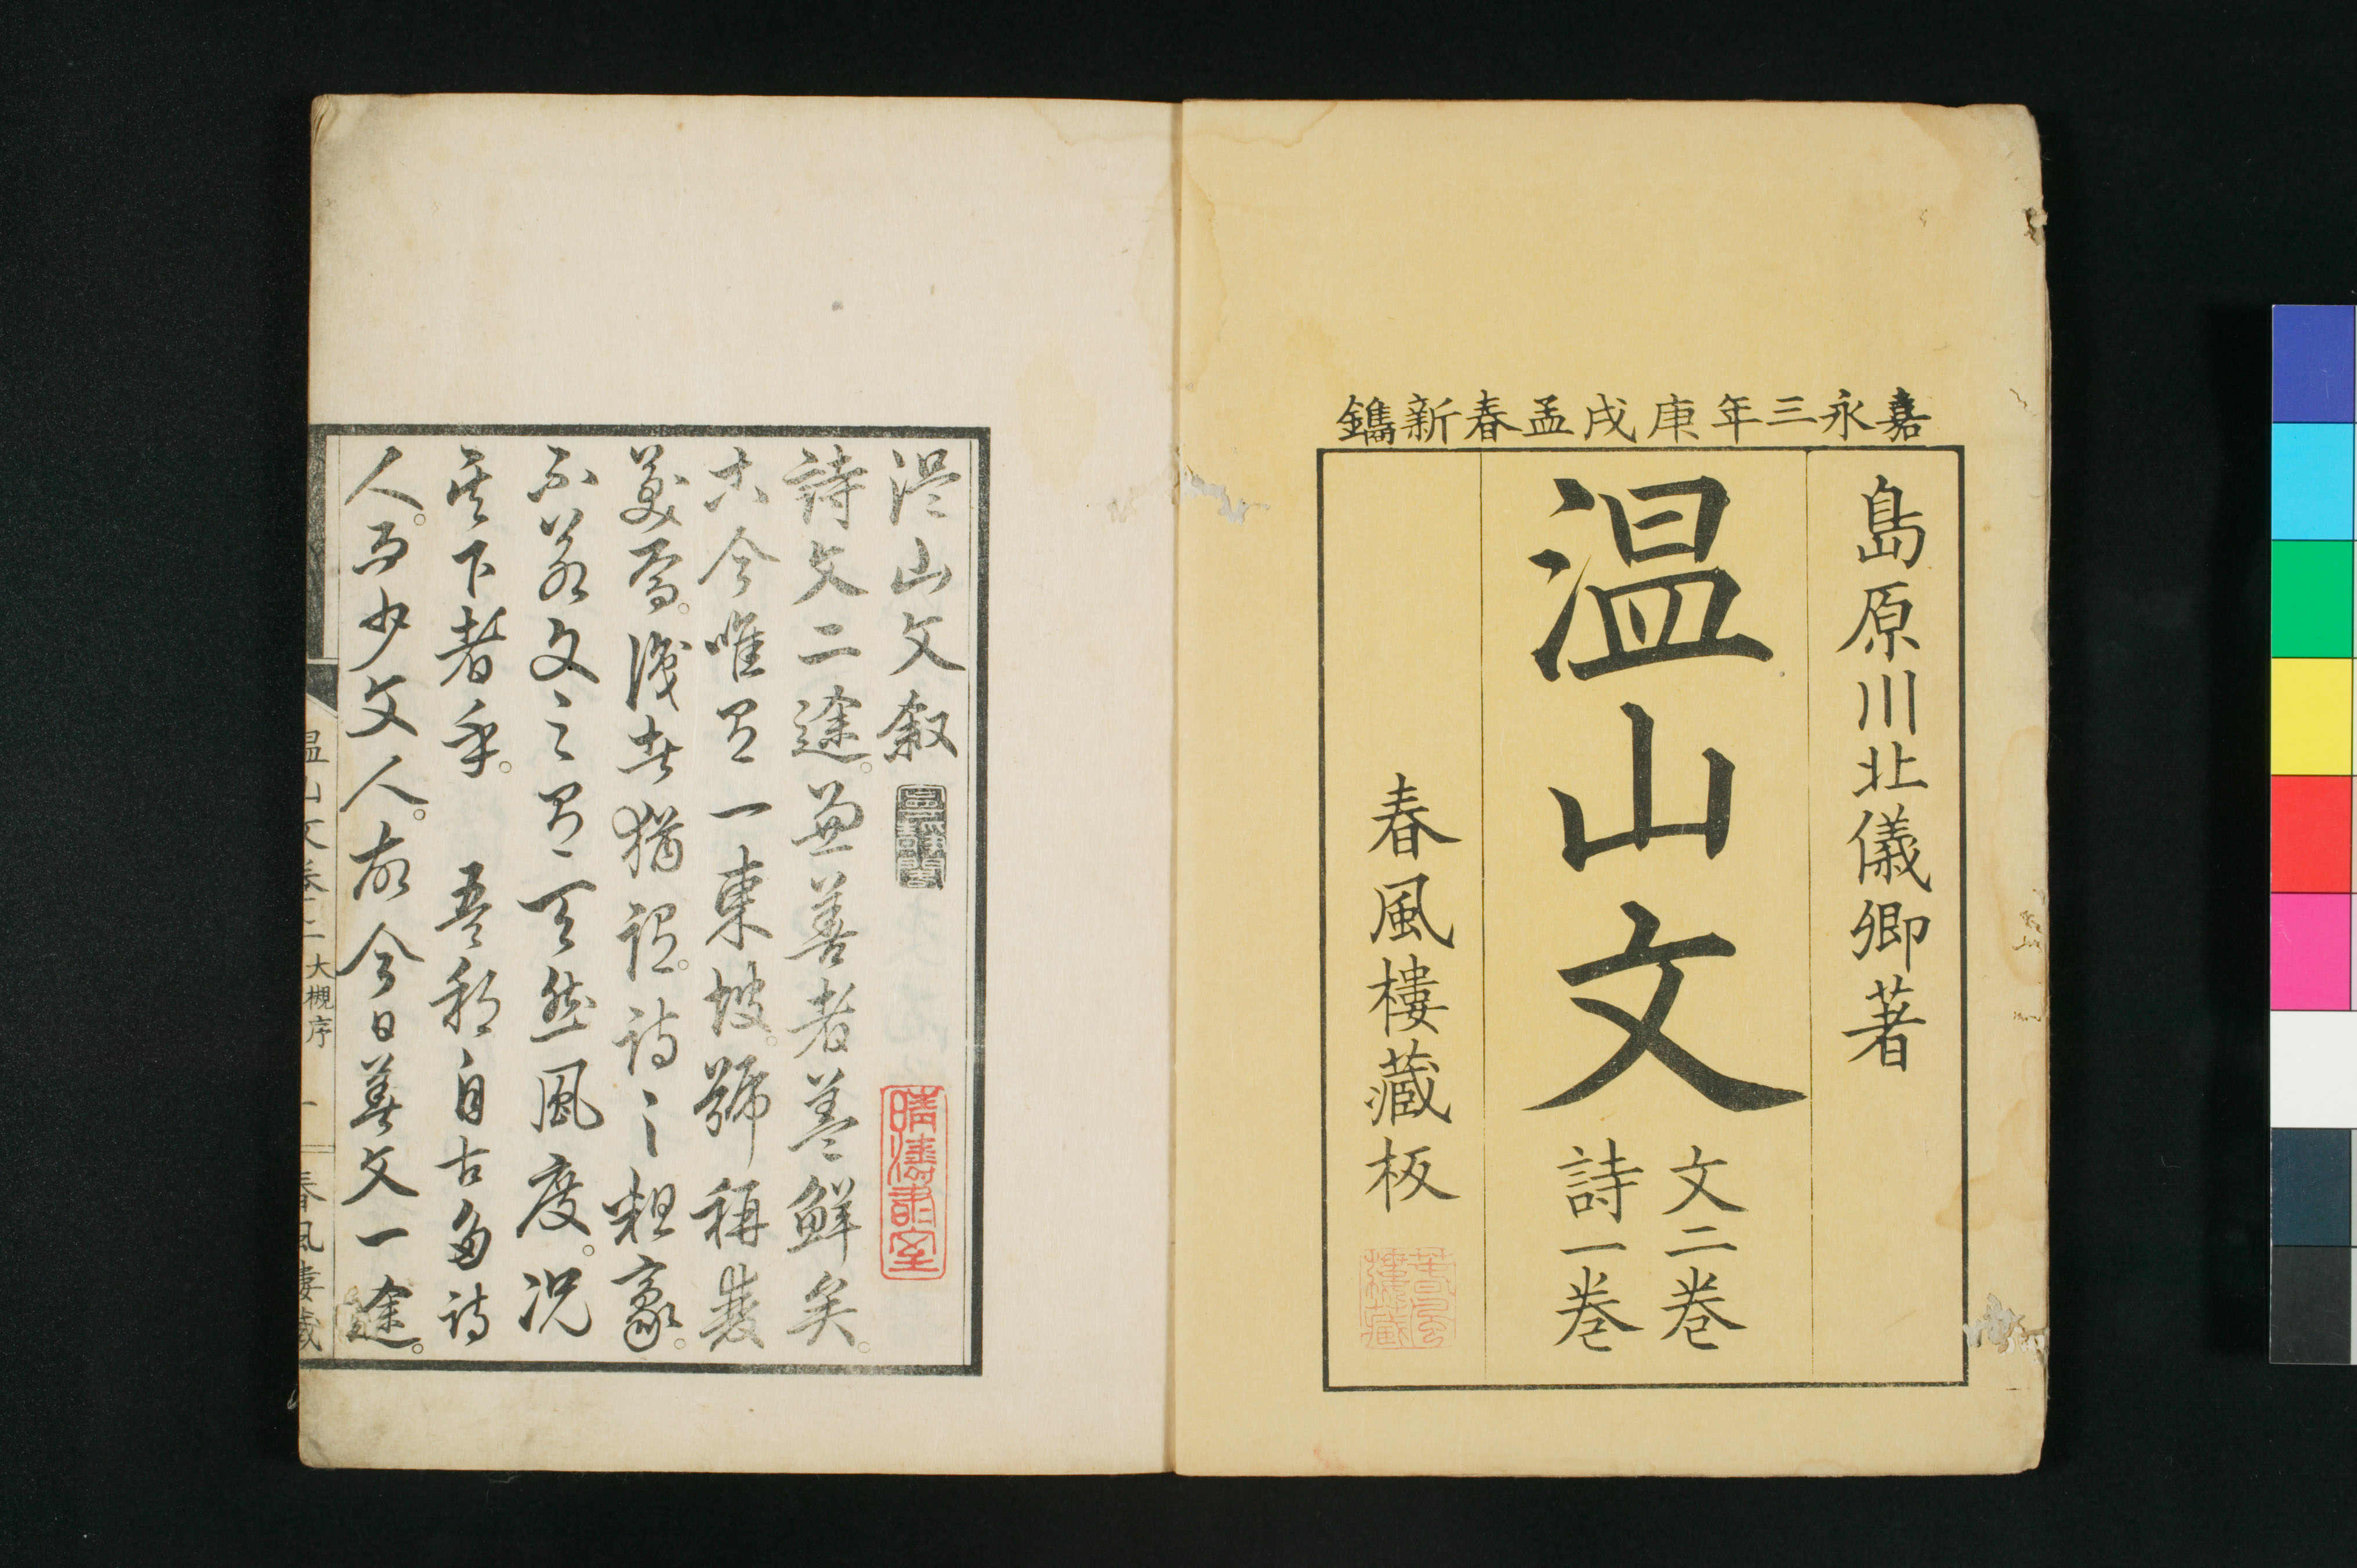 嘉永三年庚戌孟春新鐫
島原川北儀卿著
温山文
文二巻
詩一巻
春風樓藏板
春風樓藏
温山文叙
晴濤書室
詩文二途。兼善者蓋鮮矣。
古今唯有一東坡。號稱裴
美焉。識者猶謂。詩之粗豪。
不若文之有天然風度。況
其下者乎。吾邦自古多詩
人。而少文人。故今日善文一途。
温山文巻
大槻序
一
春風樓藏